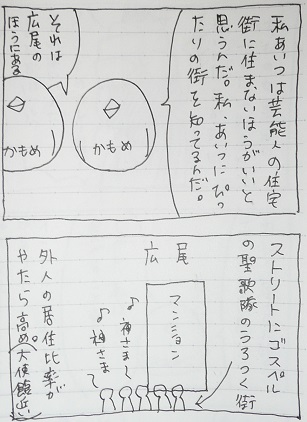 私あいつは芸能人の住宅
街に住まないほうがいいと
思うんだ。私、あいつにぴっ
たりの街を知ってるんだ。
かもめ
それは
広尾の
ほうにある
かもめ
ストリートにゴスペル
の聖歌隊のうろつく街
広尾
マンション
♪神さま〜
♪神さま〜
外人の居住比率が
やたら高め。大使館近い